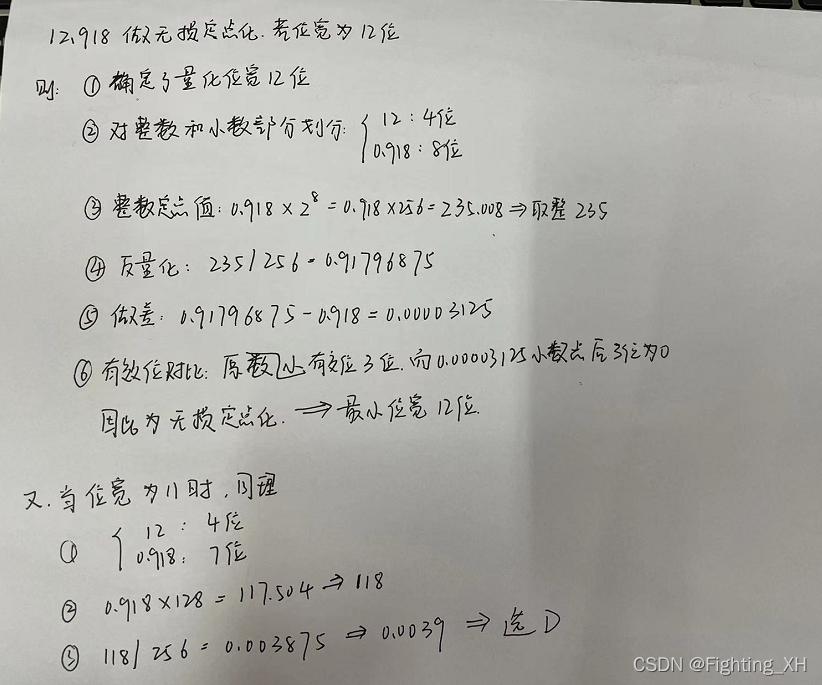 12.918 做无损定点化. 若位宽为12位
则: ① 确定了量化位宽12位
② 对整数和小数部分划分: { 12 : 4位
0.918 : 8位
③ 整数定点值: 0.918 × 2⁸ = 0.918 × 256 = 235.008 ⇒ 取整 235
④ 反量化: 235/256 = 0.91796875
⑤ 做差: 0.91796875 - 0.918 = 0.00003125
⑥ 有效位对比: 原数小有效位3位. 而0.00003125小数点后3位为0
因此为无损定点化. ⇒ 最小位宽12位.
又. 当位宽为11时, 同理
① { 12 : 4位
0.918: 7位
② 0.918×128 = 117.504 ⇒ 118
③ 118/256 = 0.003875 ⇒ 0.0039 ⇒ 选D
CSDN @Fighting_XH